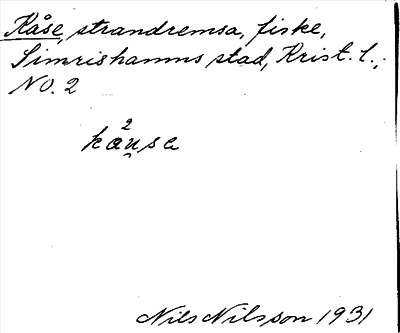 Kåse, strandremsa, fiske,
Simrishamns stad, Krist. l.,
NO. 2
2
kåu̯sa
Nils Nilsson 1931